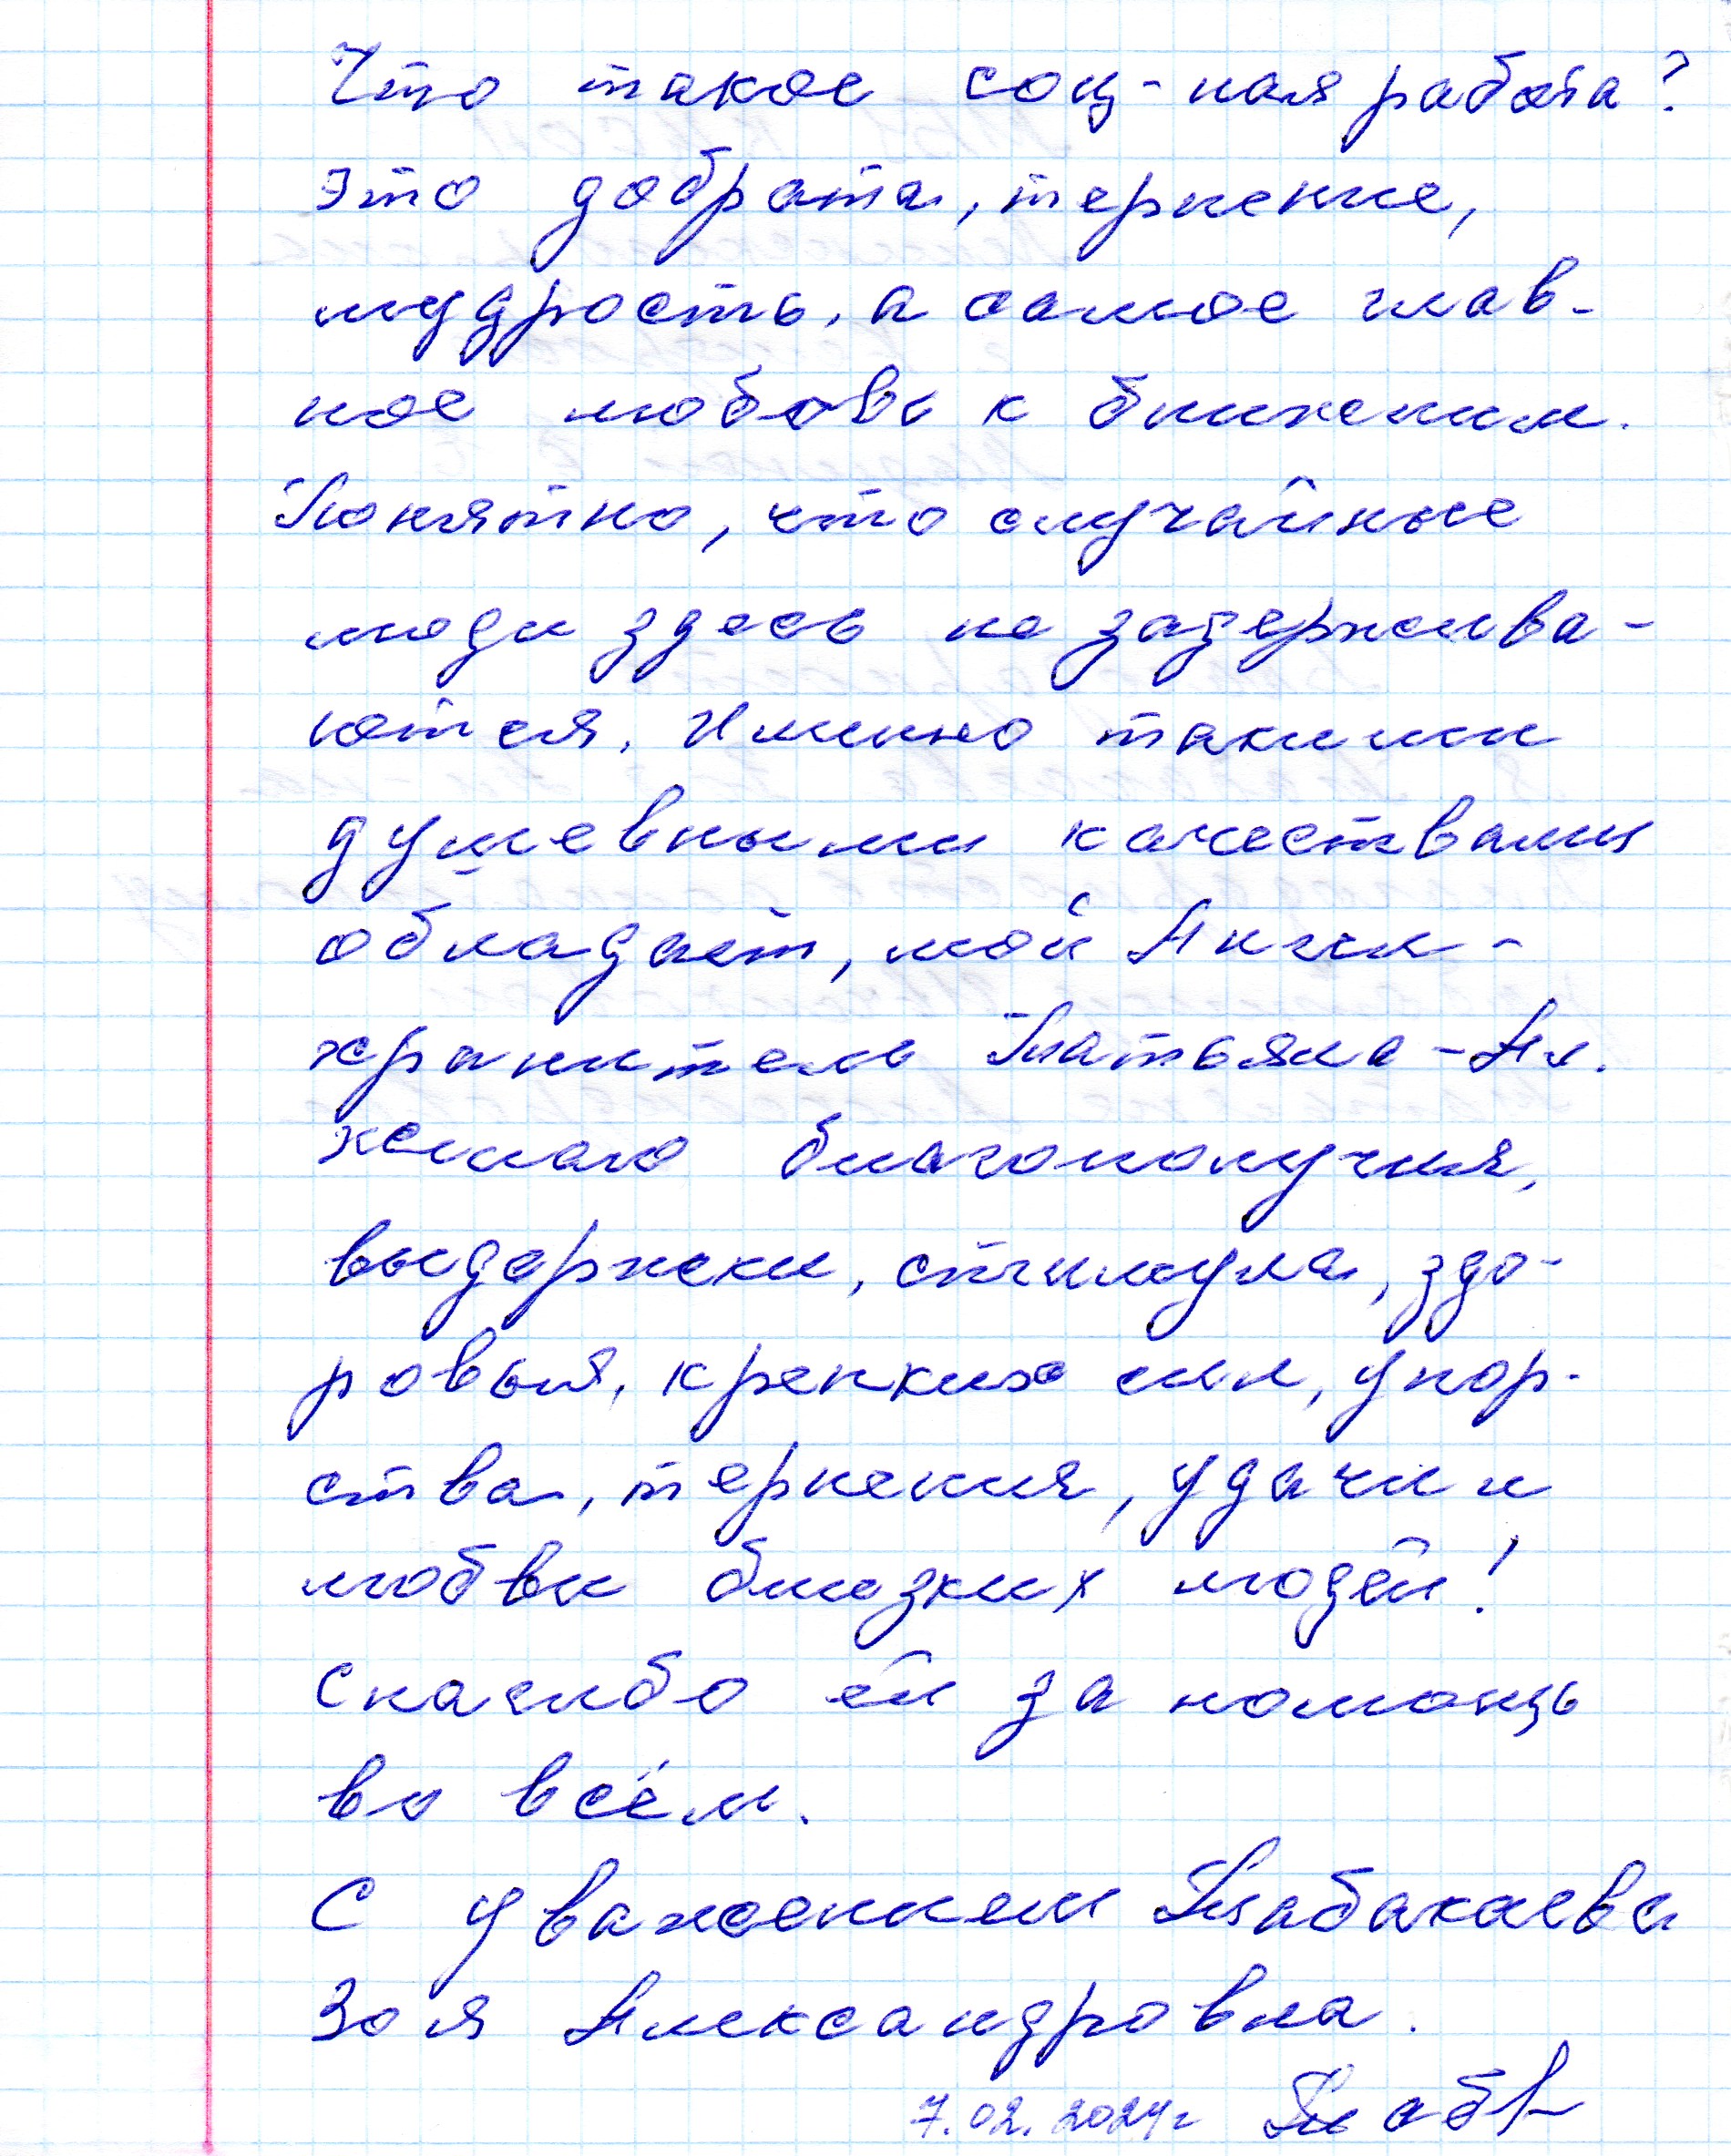 Что такое соц-ная работа?
это доброта, терпение,
мудрость, а самое глав-
ное любовь к ближним.
Понятно, что случайные
люди здесь не задержива-
ются. Именно такими
душевными качествами
обладает, мой Ангел-
хранитель Татьяна-Ал.
желаю благополучия,
выдержки, стимула, здо-
ровья, крепких сил, упор-
ства, терпения, удачи и
любви близких людей!
Спасибо ей за помощь
во всём.
С уважением Табакаева
Зоя Александровна.
7.02.2024г